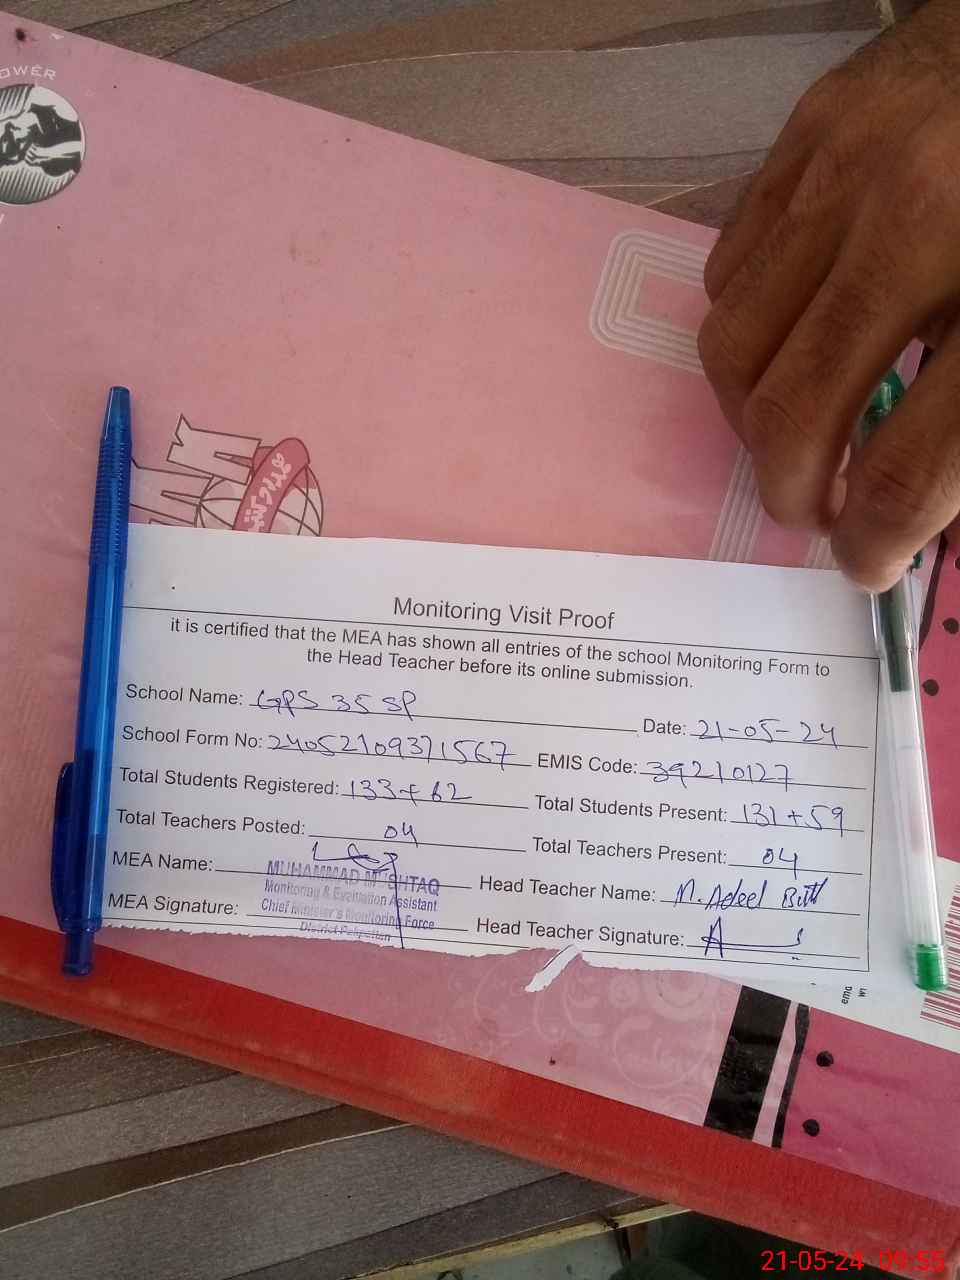 OWER
Monitoring Visit Proof
it is certified that the MEA has shown all entries of the school Monitoring Form to
the Head Teacher before its online submission.
School Name: GPS 35 SP Date: 21-05-24
School Form No: 24052109371567 EMIS Code: 39210127
Total Students Registered: 133+62 Total Students Present: 131+59
Total Teachers Posted: 04 Total Teachers Present: 04
MEA Name: Head Teacher Name: M. Adeel Butt
MUHAMMAD MUSHTAQ
Monitoring & Evaluation Assistant
Chief Minister's Monitoring Force
District Pakpattan
MEA Signature: Head Teacher Signature:
21-05-24 09:55